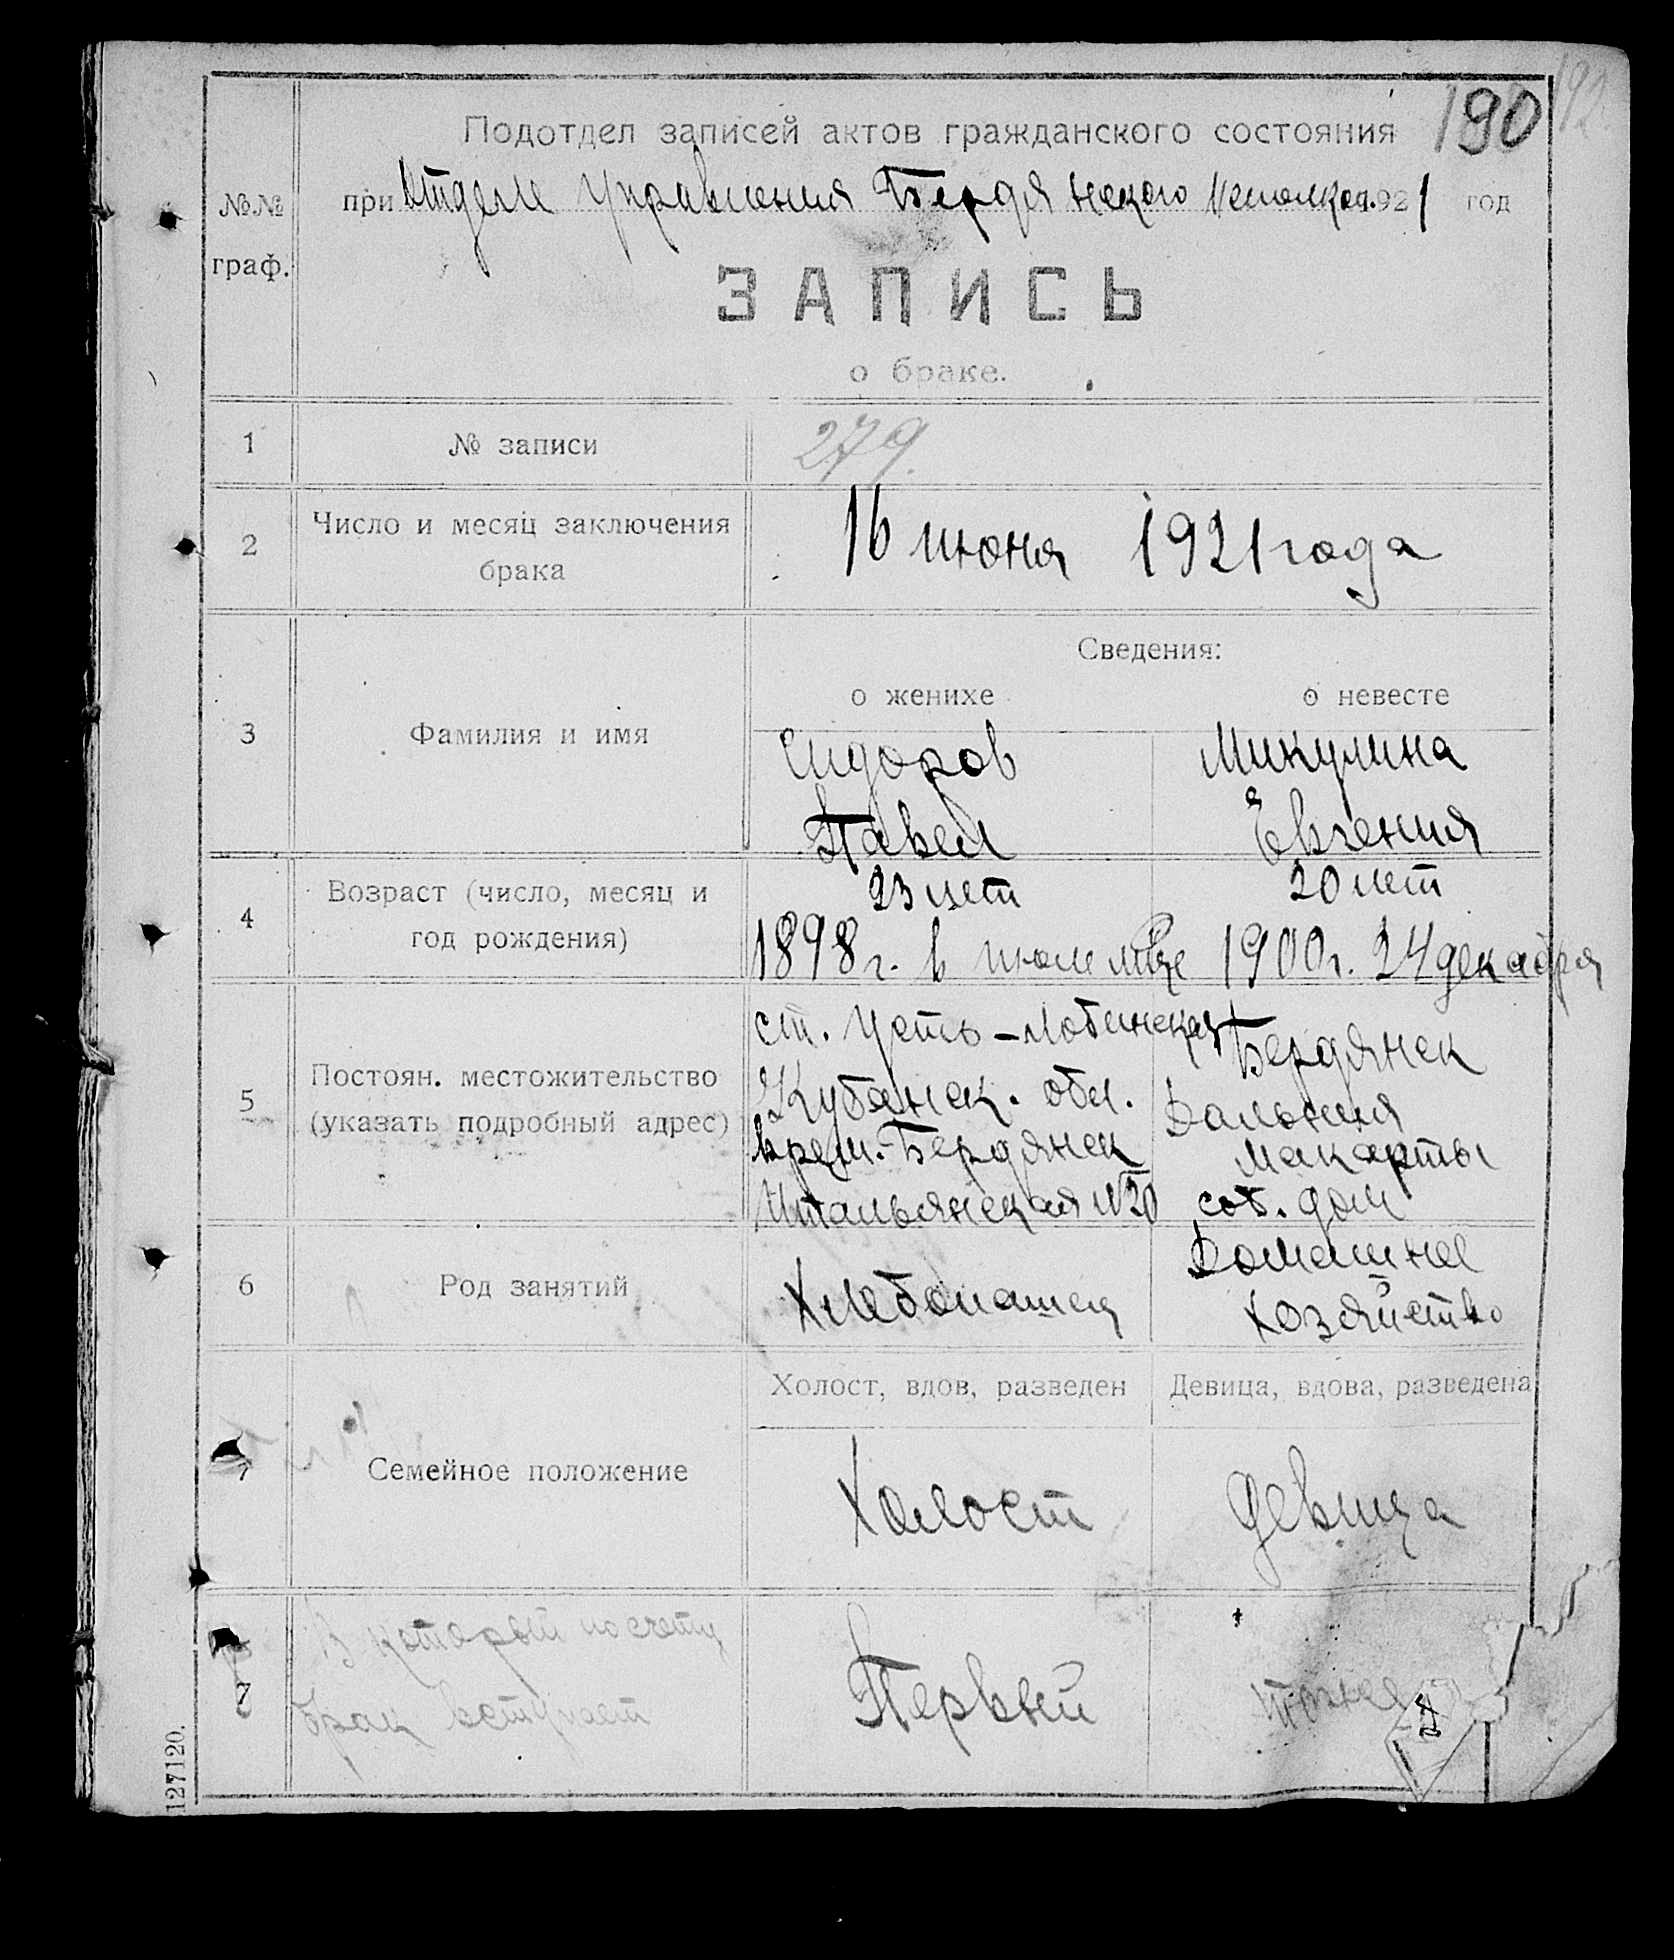 190 192
Подотдел записей актов гражданского состояния
при Отделе Управления Бердянского Исполкома 1921 год
№№
граф.
ЗАПИСЬ
о браке.
1 № записи 279.
2 Число и месяц заключения
брака
16 июня 1921 года
Сведения:
о женихе о невесте
3 Фамилия и имя
Сидоров Микулина
Павел Евгения
4 Возраст (число, месяц и
год рождения)
23 лет 20 лет
1898 г. в июле м-це 1900 г. 24 декабря
5 Постоян. местожительство
(указать подробный адрес)
ст. Усть-Лобинская
Кубанск. обл.
врем. Бердянск
Итальянская №20
Бердянск
Дальния
Макорты
соб. дом
6 Род занятий
Хлебопашец
Домашнее
хозяйство
Холост, вдов, разведен Девица, вдова, разведена
7 Семейное положение
Холост Девица
7 В который по счету
брак вступает
Первый тоже
127120.